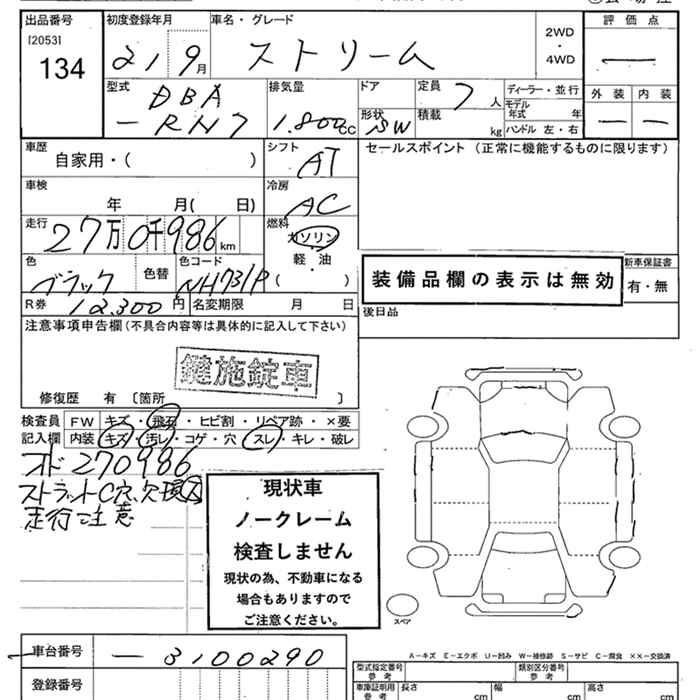 出品番号
[2053]
134
初度登録年月
21 9月
車名・グレード
ストリーム
2WD
・
4WD
評価点
外装 内装
型式
DBA
-RN7
排気量
1.800cc
ドア
形状
SW
定員
7人
積載
kg
ディーラー・並行
モデル年式 年
ハンドル 左・右
車歴
自家用・( )
シフト
AT
セールスポイント (正常に機能するものに限ります)
車検
年 月( 日)
冷房
AC
走行
27万0千986km
燃料
ガソリン
軽・油
( )
色
ブラック
色替
色コード
NH731P
装備品欄の表示は無効
新車保証書
有・無
R券 12,300円
名変期限 月 日
後日品
注意事項申告欄(不具合内容等は具体的に記入して下さい)
鍵施錠車
修復歴 有 [箇所 ]
検査員
記入欄
FW キズ・飛石・ヒビ割・リペア跡・×要
内装 キズ・汚レ・コゲ・穴・スレ・キレ・破レ
オド270986
ストラットC穴、欠
走行注意
現状車
ノークレーム
検査しません
現状の為、不動車になる
場合もありますので
ご注意ください。
スペア
A-キズ E-エクボ U-凹み W-補修跡 S-サビ C-腐食 ××-交換済
車台番号
-3100290
登録番号
型式指定番号
参考
類別区分番号
参考
車庫証明用
参考
長さ cm
幅 cm
高さ cm